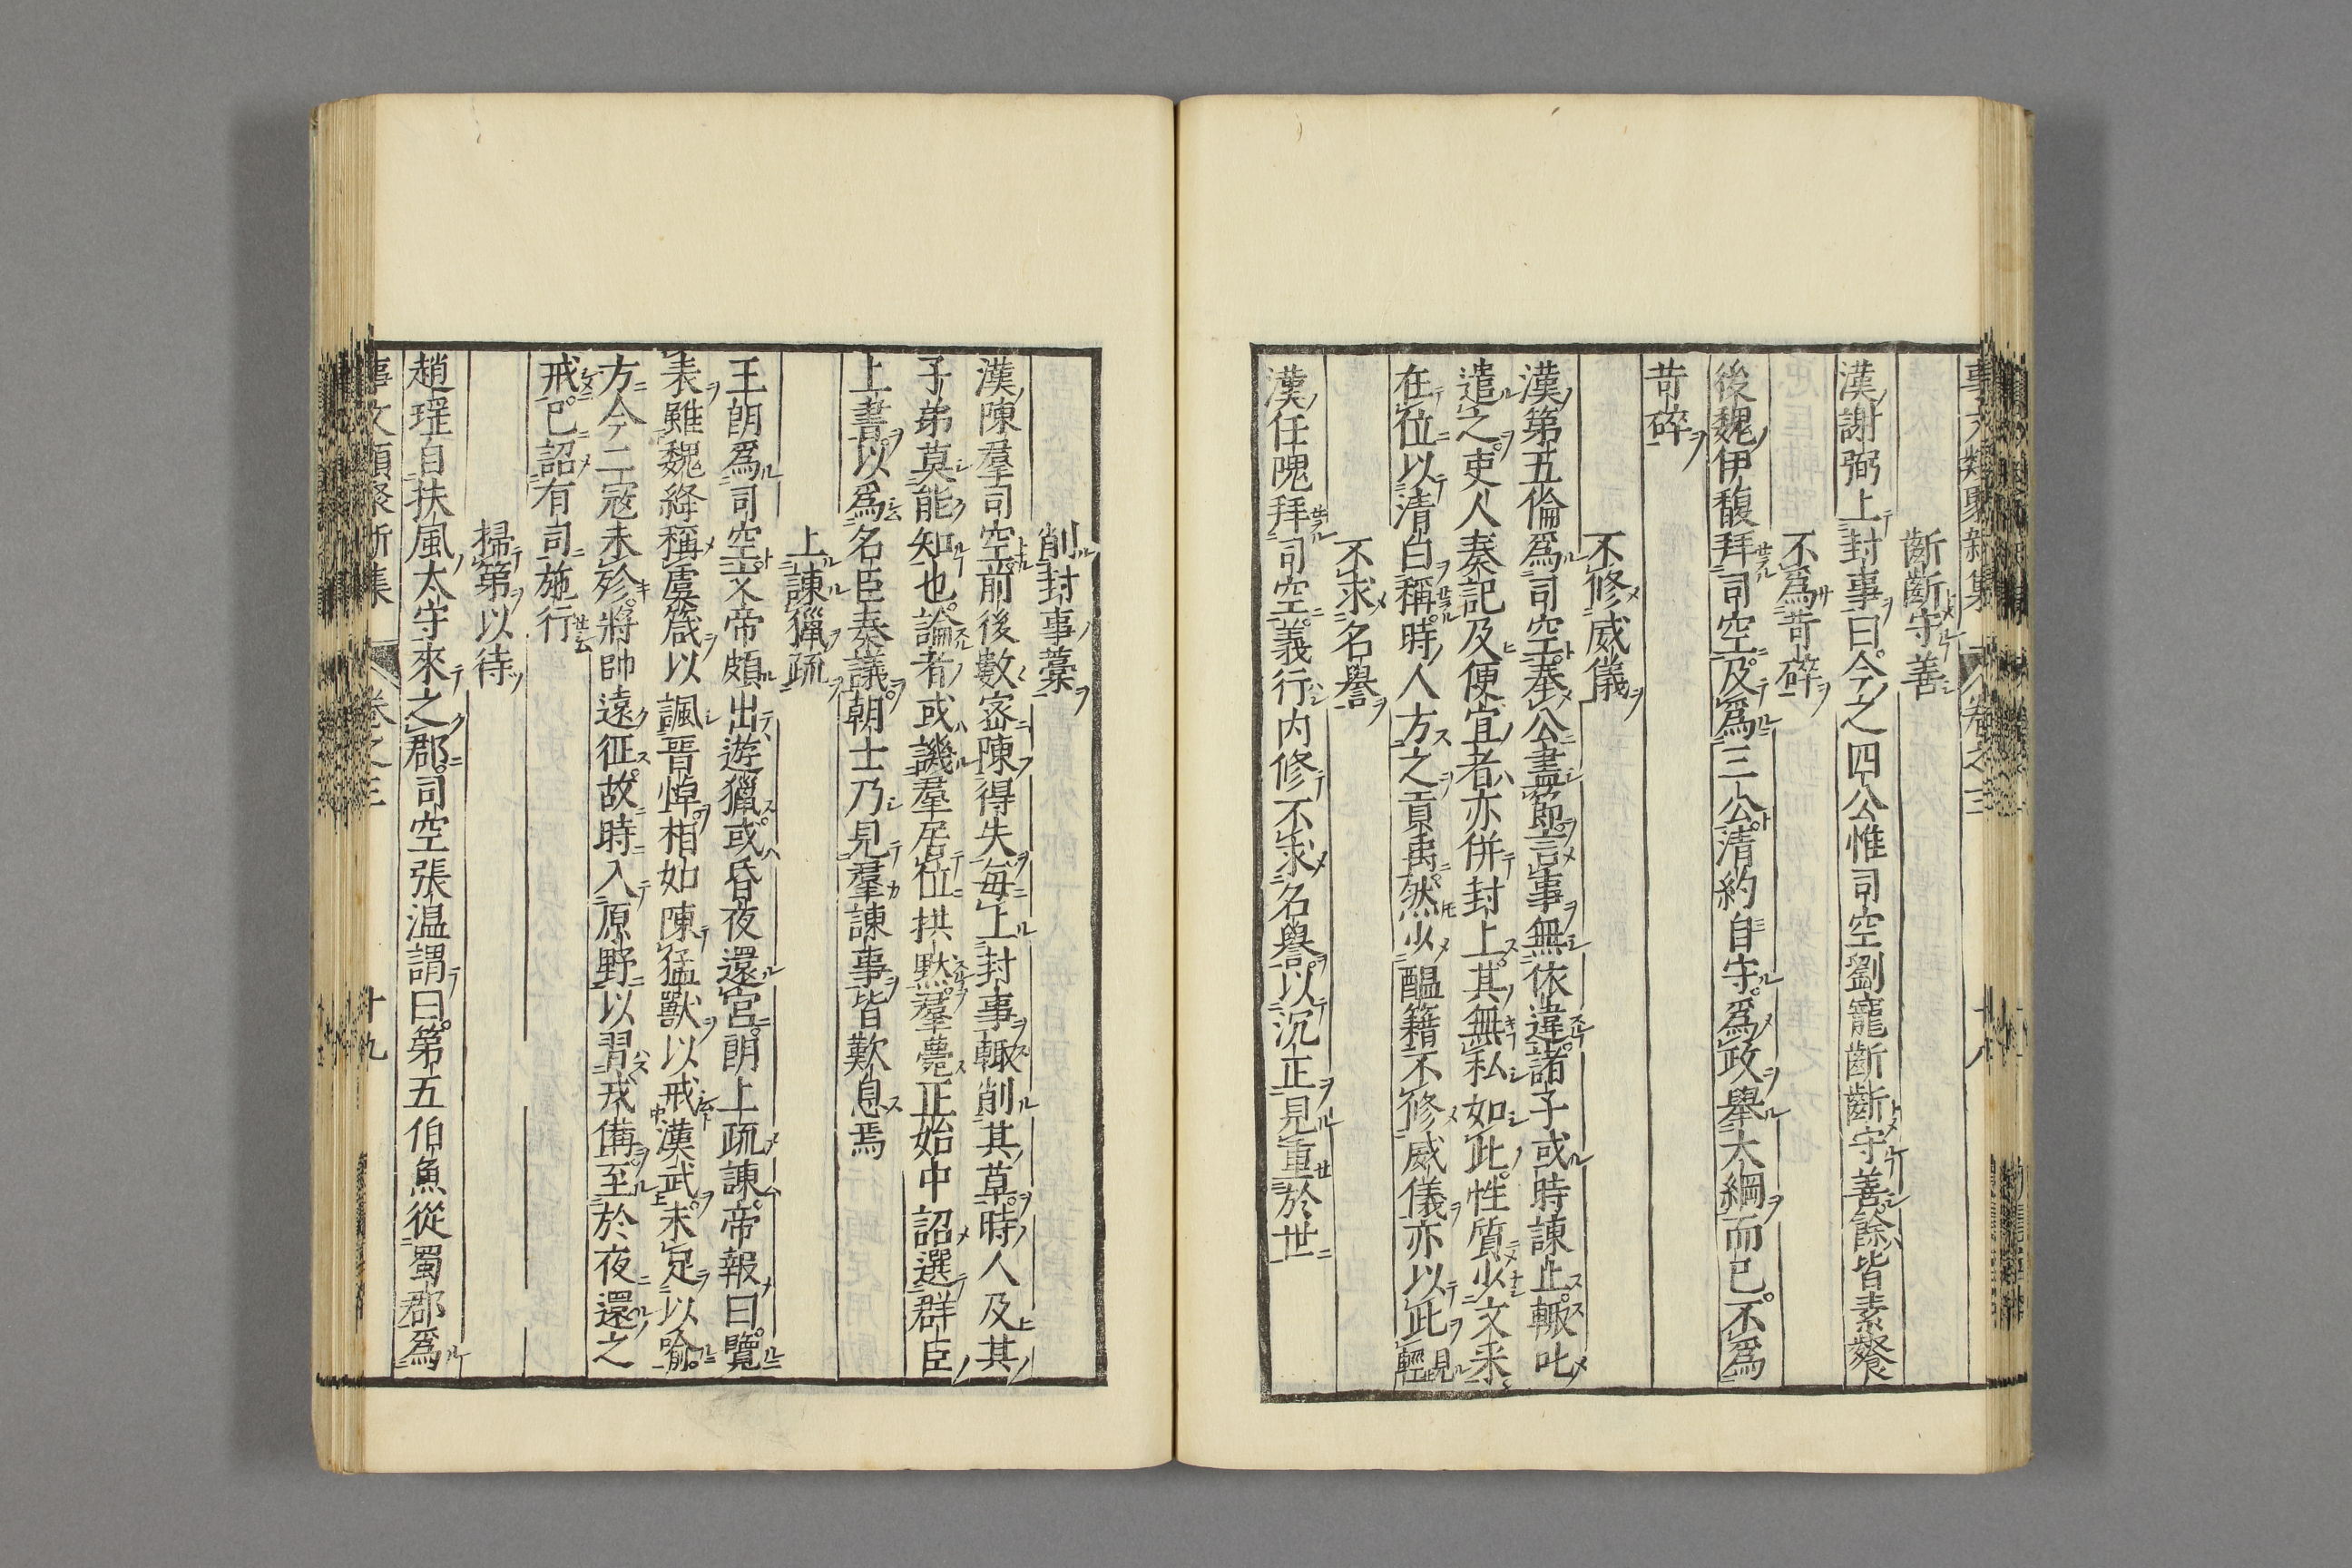 斷斷守善
漢謝弼上封事曰今之四公惟司空劉寵斷斷守善餘皆素餐
不爲苛碎
後魏伊馛拜司空及爲三公清約自守爲政舉大綱而已不爲
苛碎
不修威儀
漢第五倫爲司空奉公盡節言事無依違諸子或時諫止輒叱
遣之吏人奏記及便宜者亦併封上其無私如此性質少文采
在位以清白稱時人方之貢禹然少醞籍不修威儀亦以此見輕
不求名譽
漢任隗拜司空義行内修不求名譽以沉正見重於世
削封事藁
漢陳羣司空前後數密陳得失每上封事輒削其草時人及其
子弟莫能知也論者或譏羣居位拱默羣薨正始中詔選群臣
上書以爲名臣奏議朝士乃見羣諫事皆歎息焉
上諫獵疏
王朗爲司空文帝頗出遊獵或昏夜還宮朗上疏諫帝報曰覽
表雖魏絳稱虞箴以諷晋悼相如陳猛獸以戒漢武未足以喻
方今二寇未殄將帥遠征故時入原野以習戎備至於夜還之
戒已詔有司施行
掃第以待
趙瑶自扶風太守來之郡司空張温謂曰第五伯魚從蜀郡爲
事文類聚新集 卷之三 十九